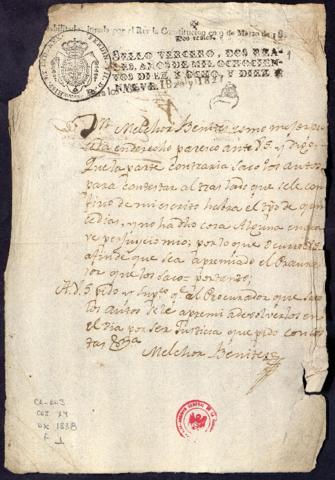 habilitado, jurada por el Rey la Constitucion en 9 de Marzo de 18
Dos reales.
SELLO TERCERO, DOS REA-
LES, AÑOS DE MIL OCHOCIEN-
TOS DIEZ Y OCHO, Y DIEZ
NUEVE.
1820 y 1821
Melchor Benites como mejor pro
en derecho paresco ante V.S. y Digo:
Que la parte contraria saco los autos
para contestar al traslado que se le con
de mi escrito habra el tpo de quin
dias, y no ha dho cosa Alguna en gra
ve perjuicio mio; por lo que
afin de que sea apremiado el Procura
dor que los saco: por tanto;
A V.S. pido y Supco qe al Procurador que saco
los autos se le apremie a debolverlos en
el dia por ser Justicia que pido con cos
tas &a
Melchor Benites
CA-GC3
CAJ 24
DOC 1838
f 1